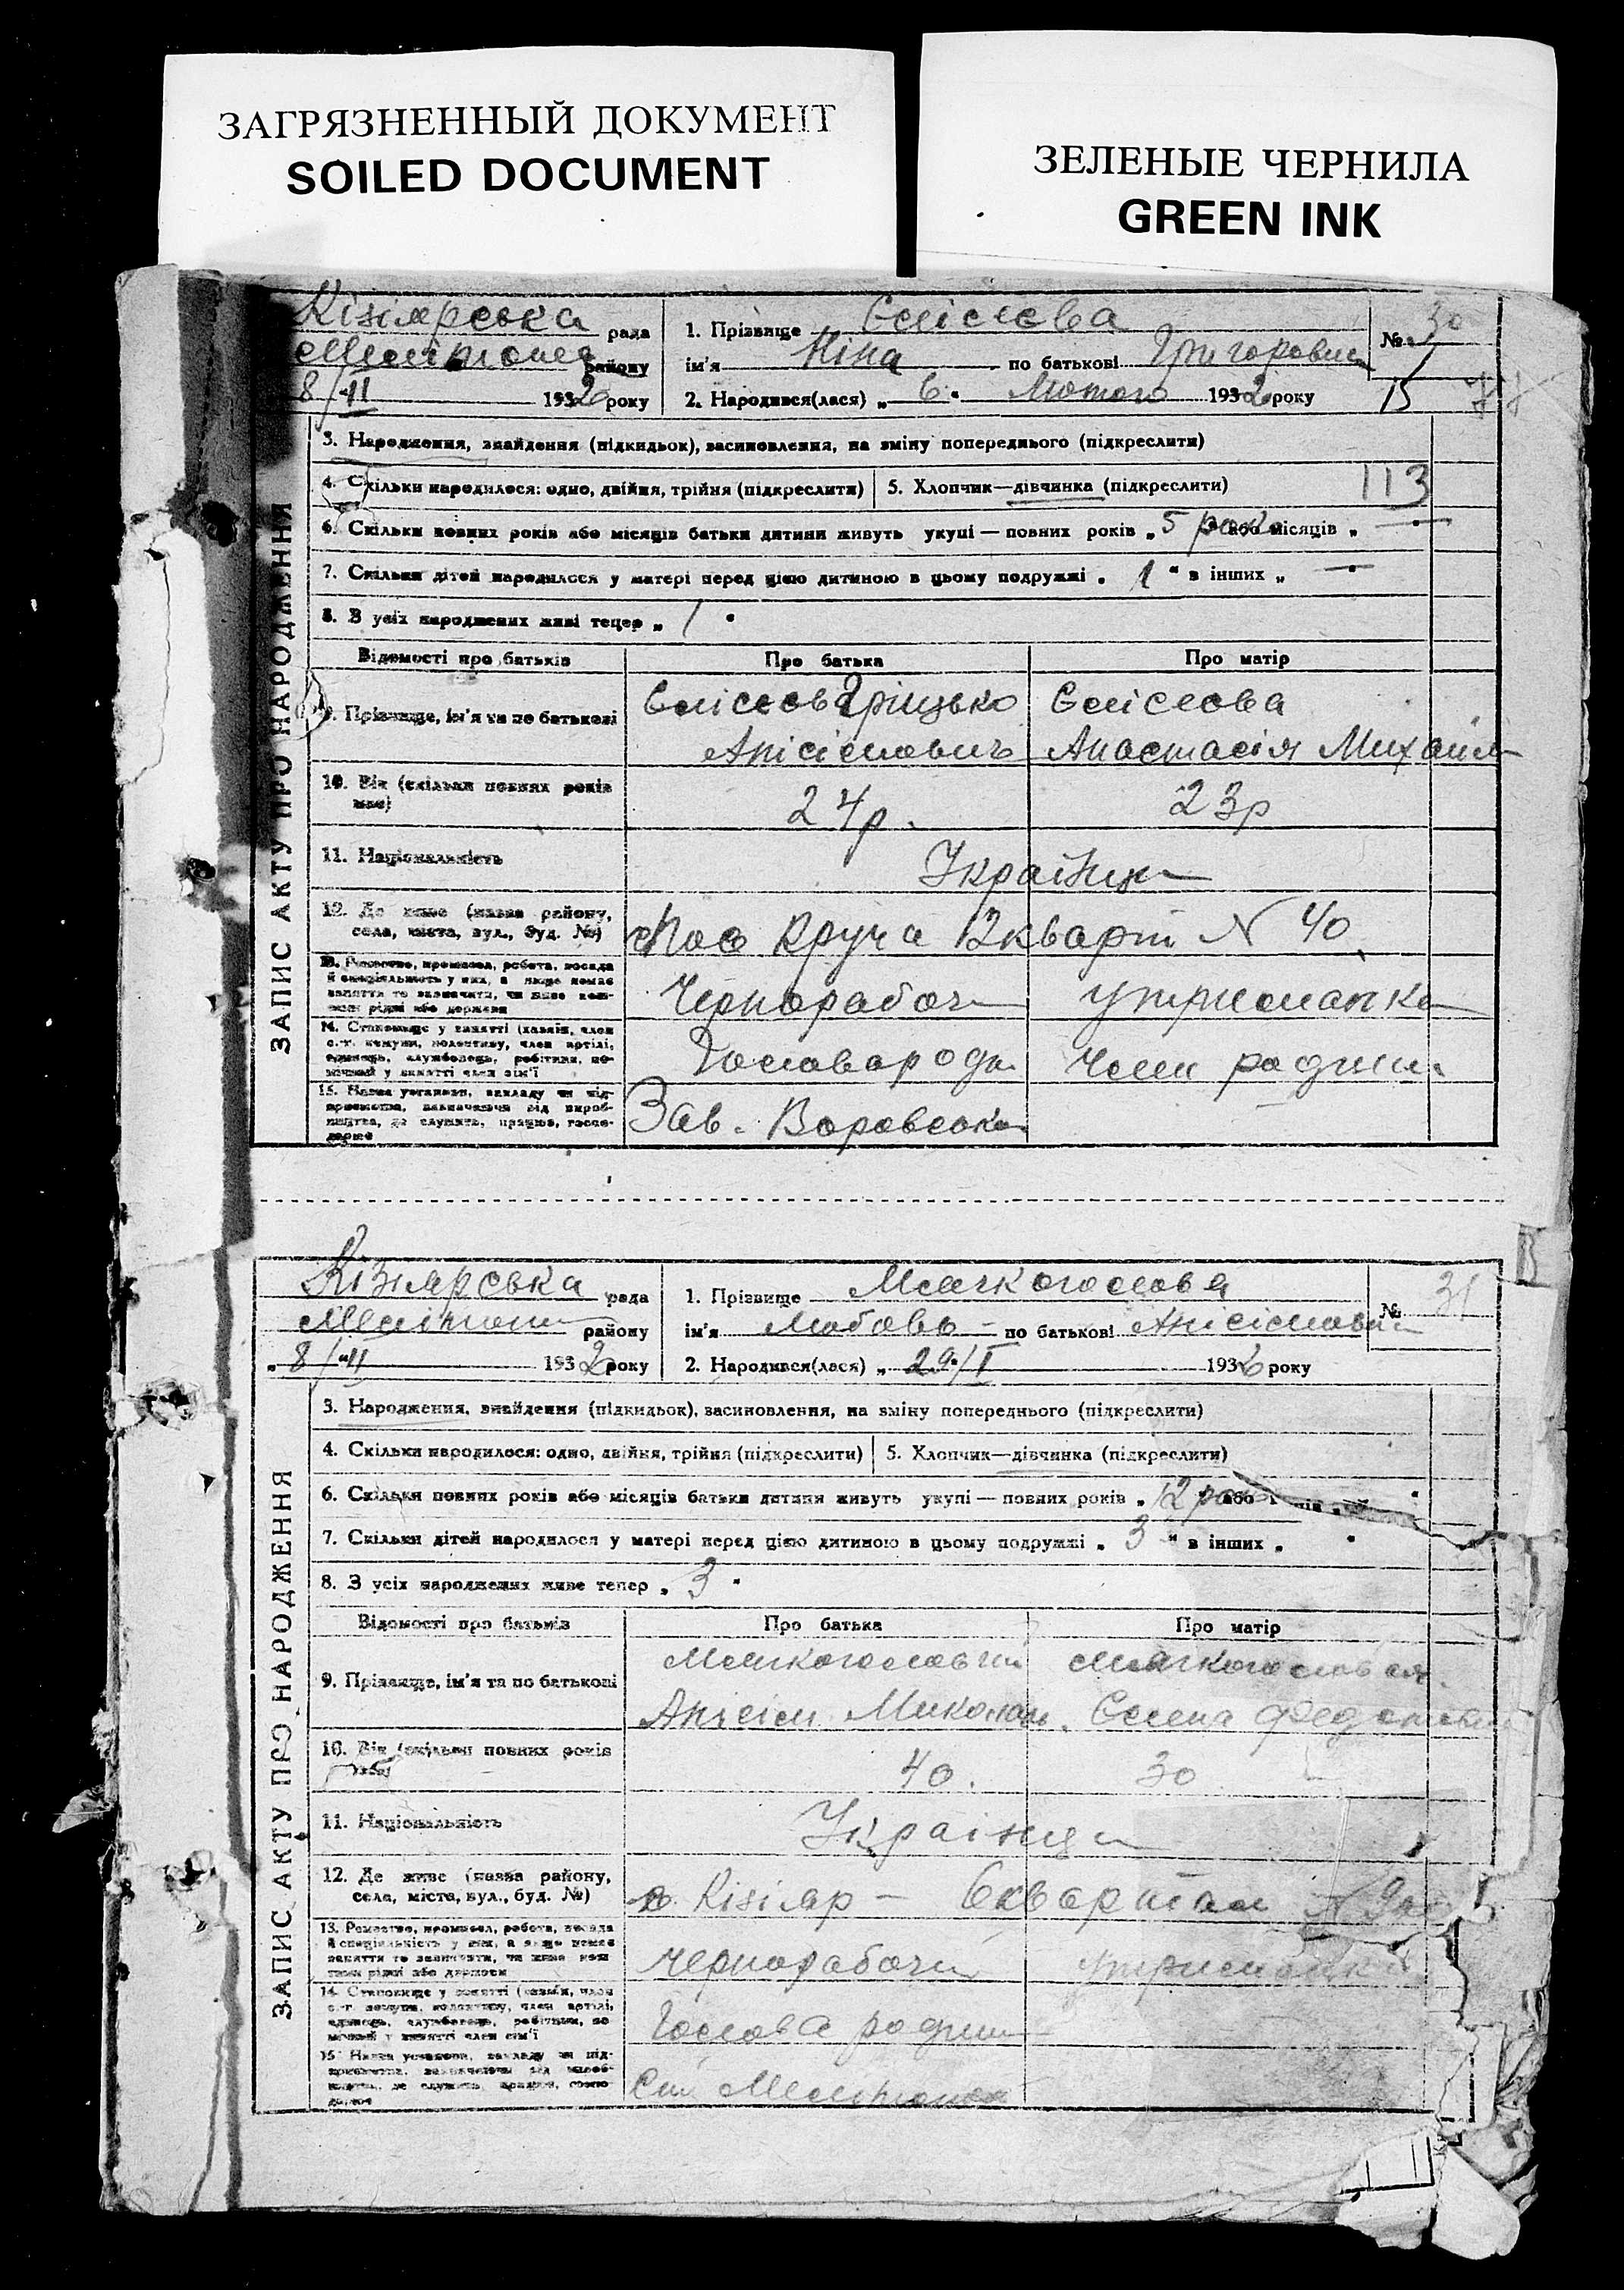 ЗАГРЯЗНЕННЫЙ ДОКУМЕНТ
SOILED DOCUMENT
ЗЕЛЕНЫЕ ЧЕРНИЛА
GREEN INK
ЗАПИС АКТУ ПРО НАРОДЖЕННЯ
Кізіярська рада
району
8/II 1932 року
1. Прізвище Єлісєєва
ім'я Ніна по батькові Григоровна
2. Народився(лася) „ 6 " Лютого 1932 року
№ 30
15
3. Народження, знайдення (підкидьок), засиновлення, на зміну попереднього (підкреслити)
4. Скільки народилося: одно, двійня, трійня (підкреслити)
5. Хлопчик—дівчинка (підкреслити)
113
6. Скільки повних років або місяців батьки дитини живуть укупі — повних років „ 5 рок або місяців „ — "
7. Скільки дітей народилося у матері перед цією дитиною в цьому подружжі „ 1 " в інших „ — "
8. З усіх народжених живі тепер „ 1 "
Відомості про батьків
Про батька
Про матір
9. Прізвище, ім'я та по батькові
Єлісєєв Гріцько
Анісімович
Єлісєєва
Анастасія Михайл
10. Вік (скільки повних років має)
24р.
23р
11. Національність
Українці
12. Де живе (назва району, села, міста, вул., буд. №)
Круча 12 кварт N 40
13. Ремество, промисел, робота, посада й спеціяльність у них, а якщо немає заняття то зазначити, чи живе коштами рідні або держави
Чернорабоч
утриманка
14. Становище у занятті
Голова роди
Член родини
15. Назва установи, закладу чи підприємства, зазначаючи від виробництва, де служить, працює, господарює
Зав. Воровсько
ЗАПИС АКТУ ПРО НАРОДЖЕННЯ
Кізіярська рада
району
„ 8/II 1932 року
1. Прізвище Мягкоголова
ім'я Любовь по батькові Анісімовна
2. Народився(лася) „ 29/I 1932 року
№ 31
3. Народження, знайдення (підкидьок), засиновлення, на зміну попереднього (підкреслити)
4. Скільки народилося: одно, двійня, трійня (підкреслити)
5. Хлопчик—дівчинка (підкреслити)
6. Скільки повних років або місяців батьки дитини живуть укупі — повних років „ 12 рок або
7. Скільки дітей народилося у матері перед цією дитиною в цьому подружжі „ 3 " в інших „ "
8. З усіх народжених живе тепер „ 3 "
Відомості про батьків
Про батька
Про матір
9. Прізвище, ім'я та по батькові
Анісім Миколаїв.
Єлена
10. Вік (скільки повних років має)
40.
30
11. Національність
Українці
12. Де живе (назва району, села, міста, вул., буд. №)
Кізіяр — 6 квартал
13. Ремество, промисел, робота, посада й спеціяльність у них, а якщо немає заняття то зазначити, чи живе коштами рідні або держави
чернорабочи
утриманка
14. Становище у занятті
Голова родини
15. Назва установи, закладу чи підприємства, зазначаючи від виробництва, де служить, працює, господарює